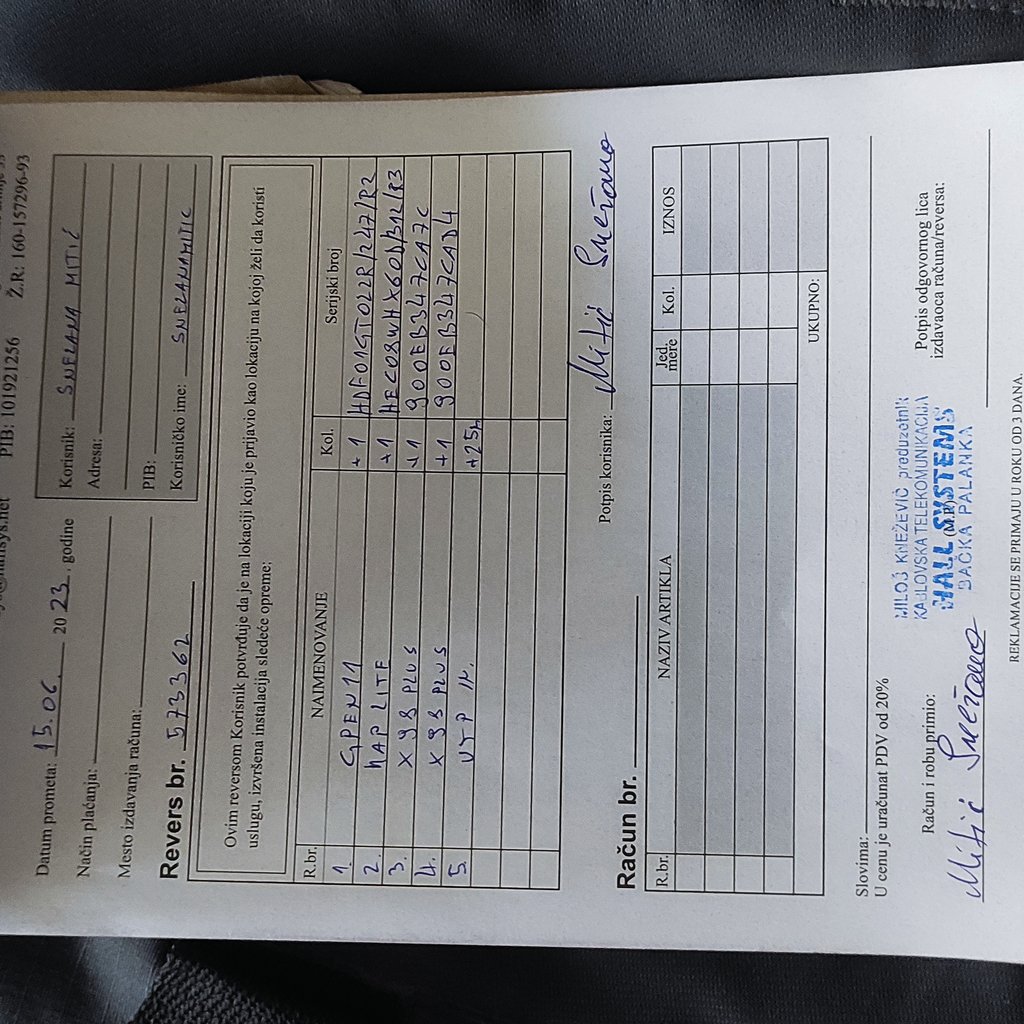 Ž.R: 160-157296-93
PIB: 101921256
Datum prometa: 15.06. 2023. godine
Način plaćanja:
Mesto izdavanja računa:
Revers br. 573362
Korisnik: SNEŽANA MITIĆ
Adresa:
PIB:
Korisničko ime: SNEŽANAMITIC
Ovim reversom Korisnik potvrđuje da je na lokaciji koju je prijavio kao lokaciju na kojoj želi da koristi
uslugu, izvršena instalacija sledeće opreme:
R.br. NAIMENOVANJE Kol. Serijski broj
1. GPEN11 +1
2. HAP LITE +1
3. X98 PLUS +1 900EB347CA7C
4. X98 PLUS +1 900EB347CAD4
5. UTP +25
Potpis korisnika: Mitić Snežana
Račun br.
R.br. NAZIV ARTIKLA Jed. mere Kol. IZNOS
UKUPNO:
Slovima:
U cenu je uračunat PDV od 20%
Račun i robu primio:
Mitić Snežana
(M.P.)
MILOŠ KNEŽEVIĆ preduzetnik
KABLOVSKA TELEKOMUNIKACIJA
MALL SYSTEMS
BAČKA PALANKA
Potpis odgovornog lica
izdavaoca računa/reversa:
REKLAMACIJE SE PRIMAJU U ROKU OD 3 DANA.